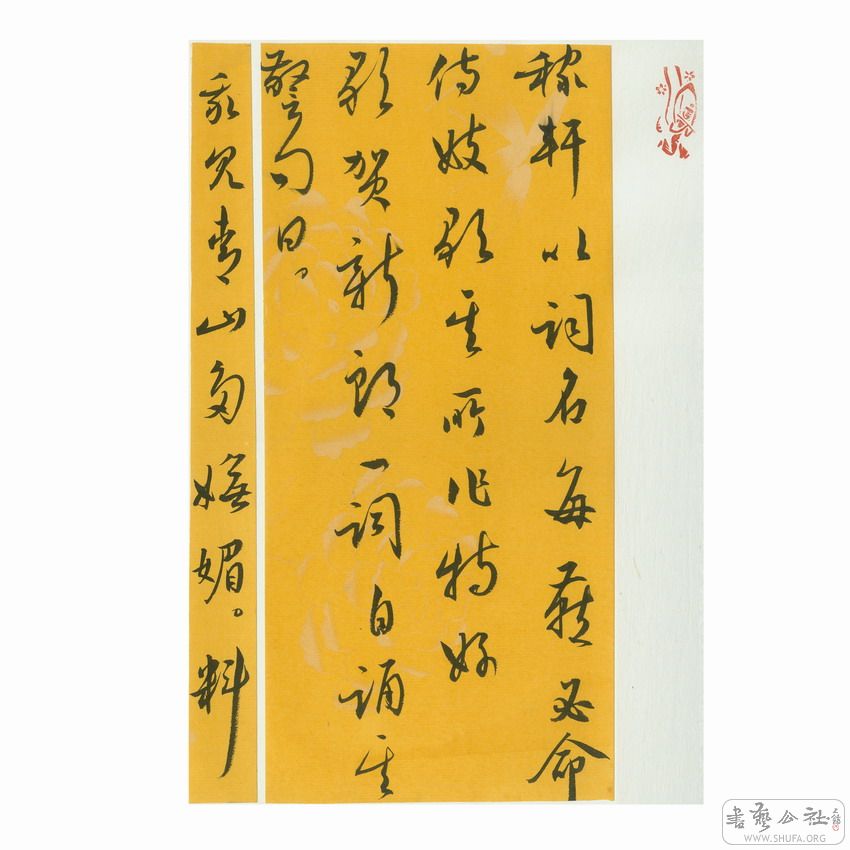 稼轩以词名每燕必命
侍妓歌其所作特好
歌贺新郎一词自诵其
警句曰。
我见青山多嫵媚。料
書藝公社
WWW.SHUFA.ORG